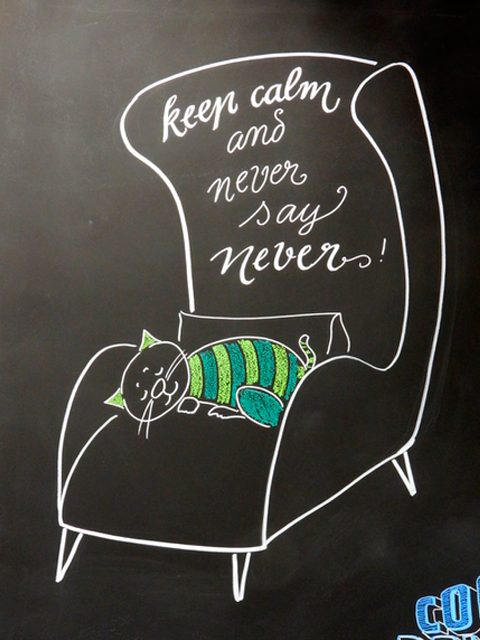 keep calm
and
never
say
never!